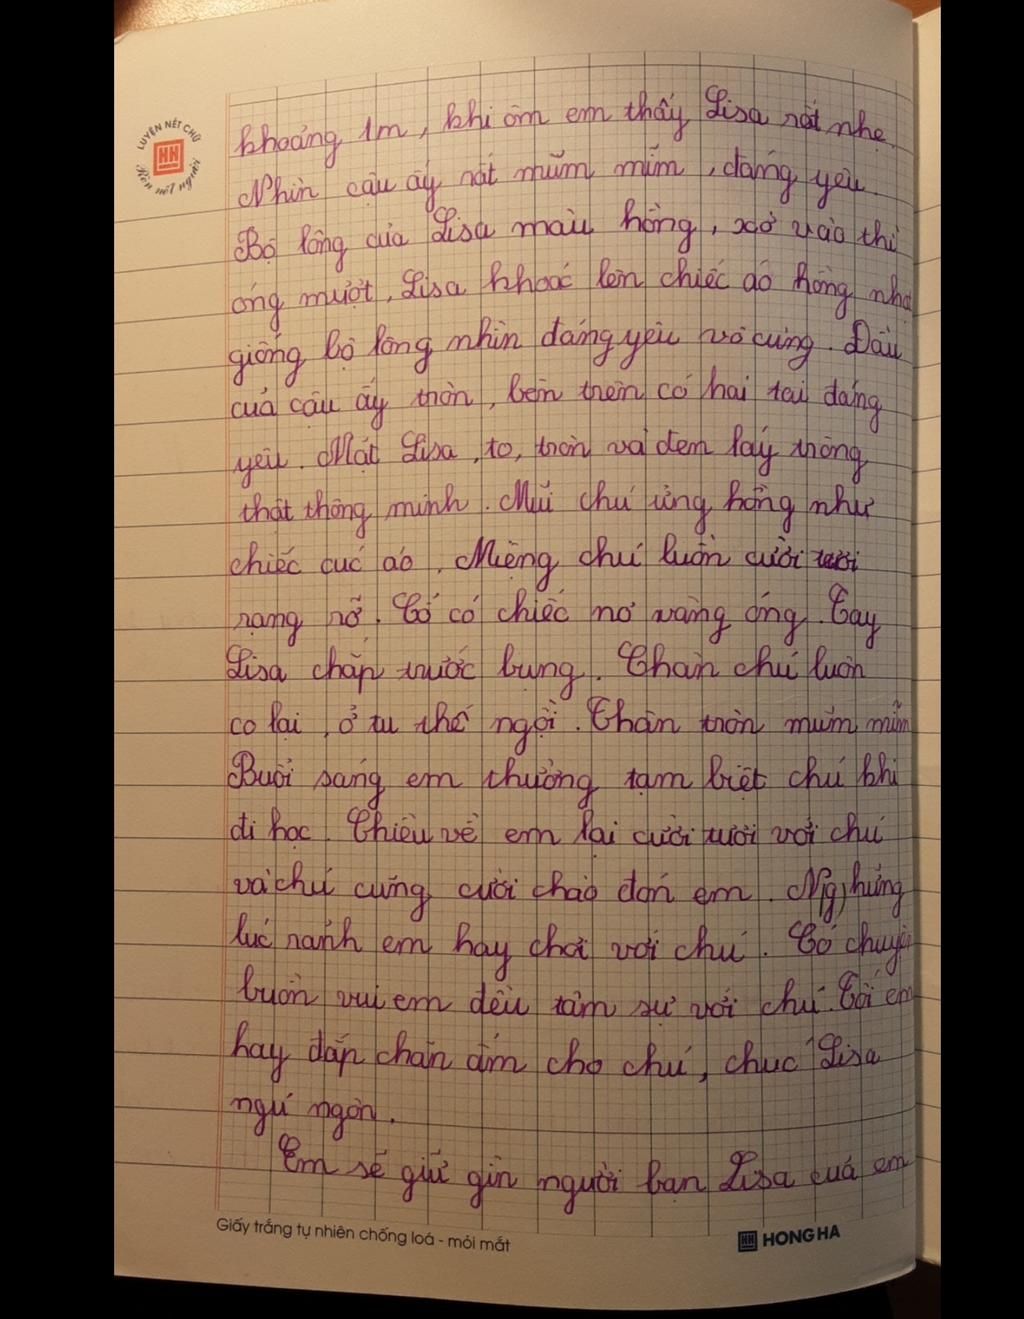 LUYỆN NÉT CHỮ
HH
Rèn nết người
khoảng 1m, khi ôm em thấy Lisa rất nhẹ.
Nhìn cậu ấy rất mũm mĩm, đáng yêu.
Bộ lông của Lisa màu hồng, xờ vào thì
óng mượt. Lisa khoác lên chiếc áo hồng nhạt
giống bộ lông nhìn đáng yêu vô cùng. Đầu
của cậu ấy tròn, bên trên có hai tai đáng
yêu. Mắt Lisa, to, tròn và đen láy trông
thật thông minh. Mũi chú ửng hồng như
chiếc cúc áo. Miệng chú luôn cười tươi
rạng rỡ. Cổ có chiếc nơ vàng óng. Tay
Lisa chắp trước bụng. Chân chú luôn
co lại, ở tư thế ngồi. Thân tròn mũm mĩm
Buổi sáng em thường tạm biệt chú khi
đi học. Chiều về em lại cười tươi với chú
và chú cũng cười chào đón em. Những
lúc rảnh em hay chơi với chú. Có chuyện
buồn vui em đều tâm sự với chú. Tối em
hay đắp chăn ấm cho chú, chúc Lisa
ngủ ngon.
Em sẽ giữ gìn người bạn Lisa của em
Giấy trắng tự nhiên chống loá - mỏi mắt
HH HONG HA